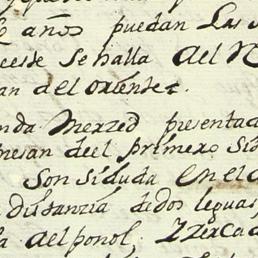 años puedan Las
ceste se halla del N
an del oriente
nda Merzed presentad
nesan deel primero si
son siduda en el
distanzia dedos leguas
a del ponol, Zerca